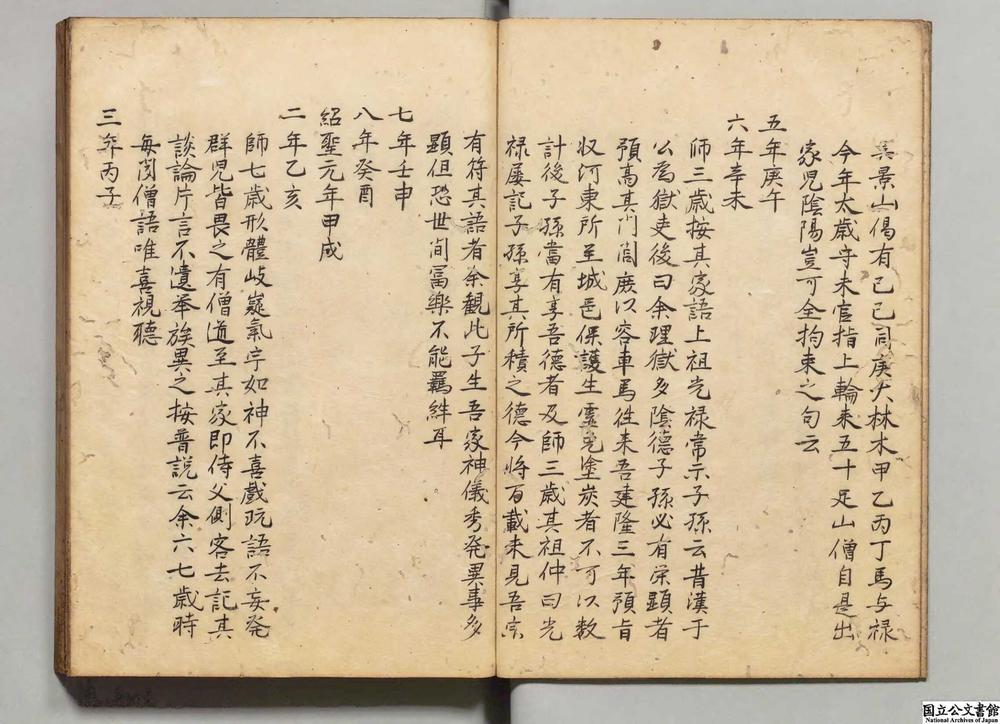 景山偈有己巳同庚大林木甲乙丙丁馬与禄
今年太歲守未官指上輪来五十足山僧自是出
家児陰陽豈可全拘束之句云
五年庚午
六年辛未
師三歲按其家語上祖光禄常示子孫云昔漢于
公為獄吏後曰余理獄多陰德子孫必有栄顕者
預高其門閭庶以容車馬徃来吾建隆三年預旨
収河東所至城邑保護生霊免塗炭者不可以数
計後子孫當有享吾德者及師三歲其祖仲曰光
禄屡記子孫享其所積之德今将百載未見吾宗
有符其語者余観此子生吾家神儀秀発異事多
顕但恐世間冨樂不能羈絆耳
七年壬申
八年癸酉
紹聖元年甲戌
二年乙亥
師七歲形體岐嶷氣宇如神不喜戲玩語不妄発
群児皆畏之有僧道至其家即侍父側客去記其
談論片言不遺挙族異之按普説云余六七歲時
每閲僧語唯喜視聴
三年丙子
国立公文書館
National Archives of Japan